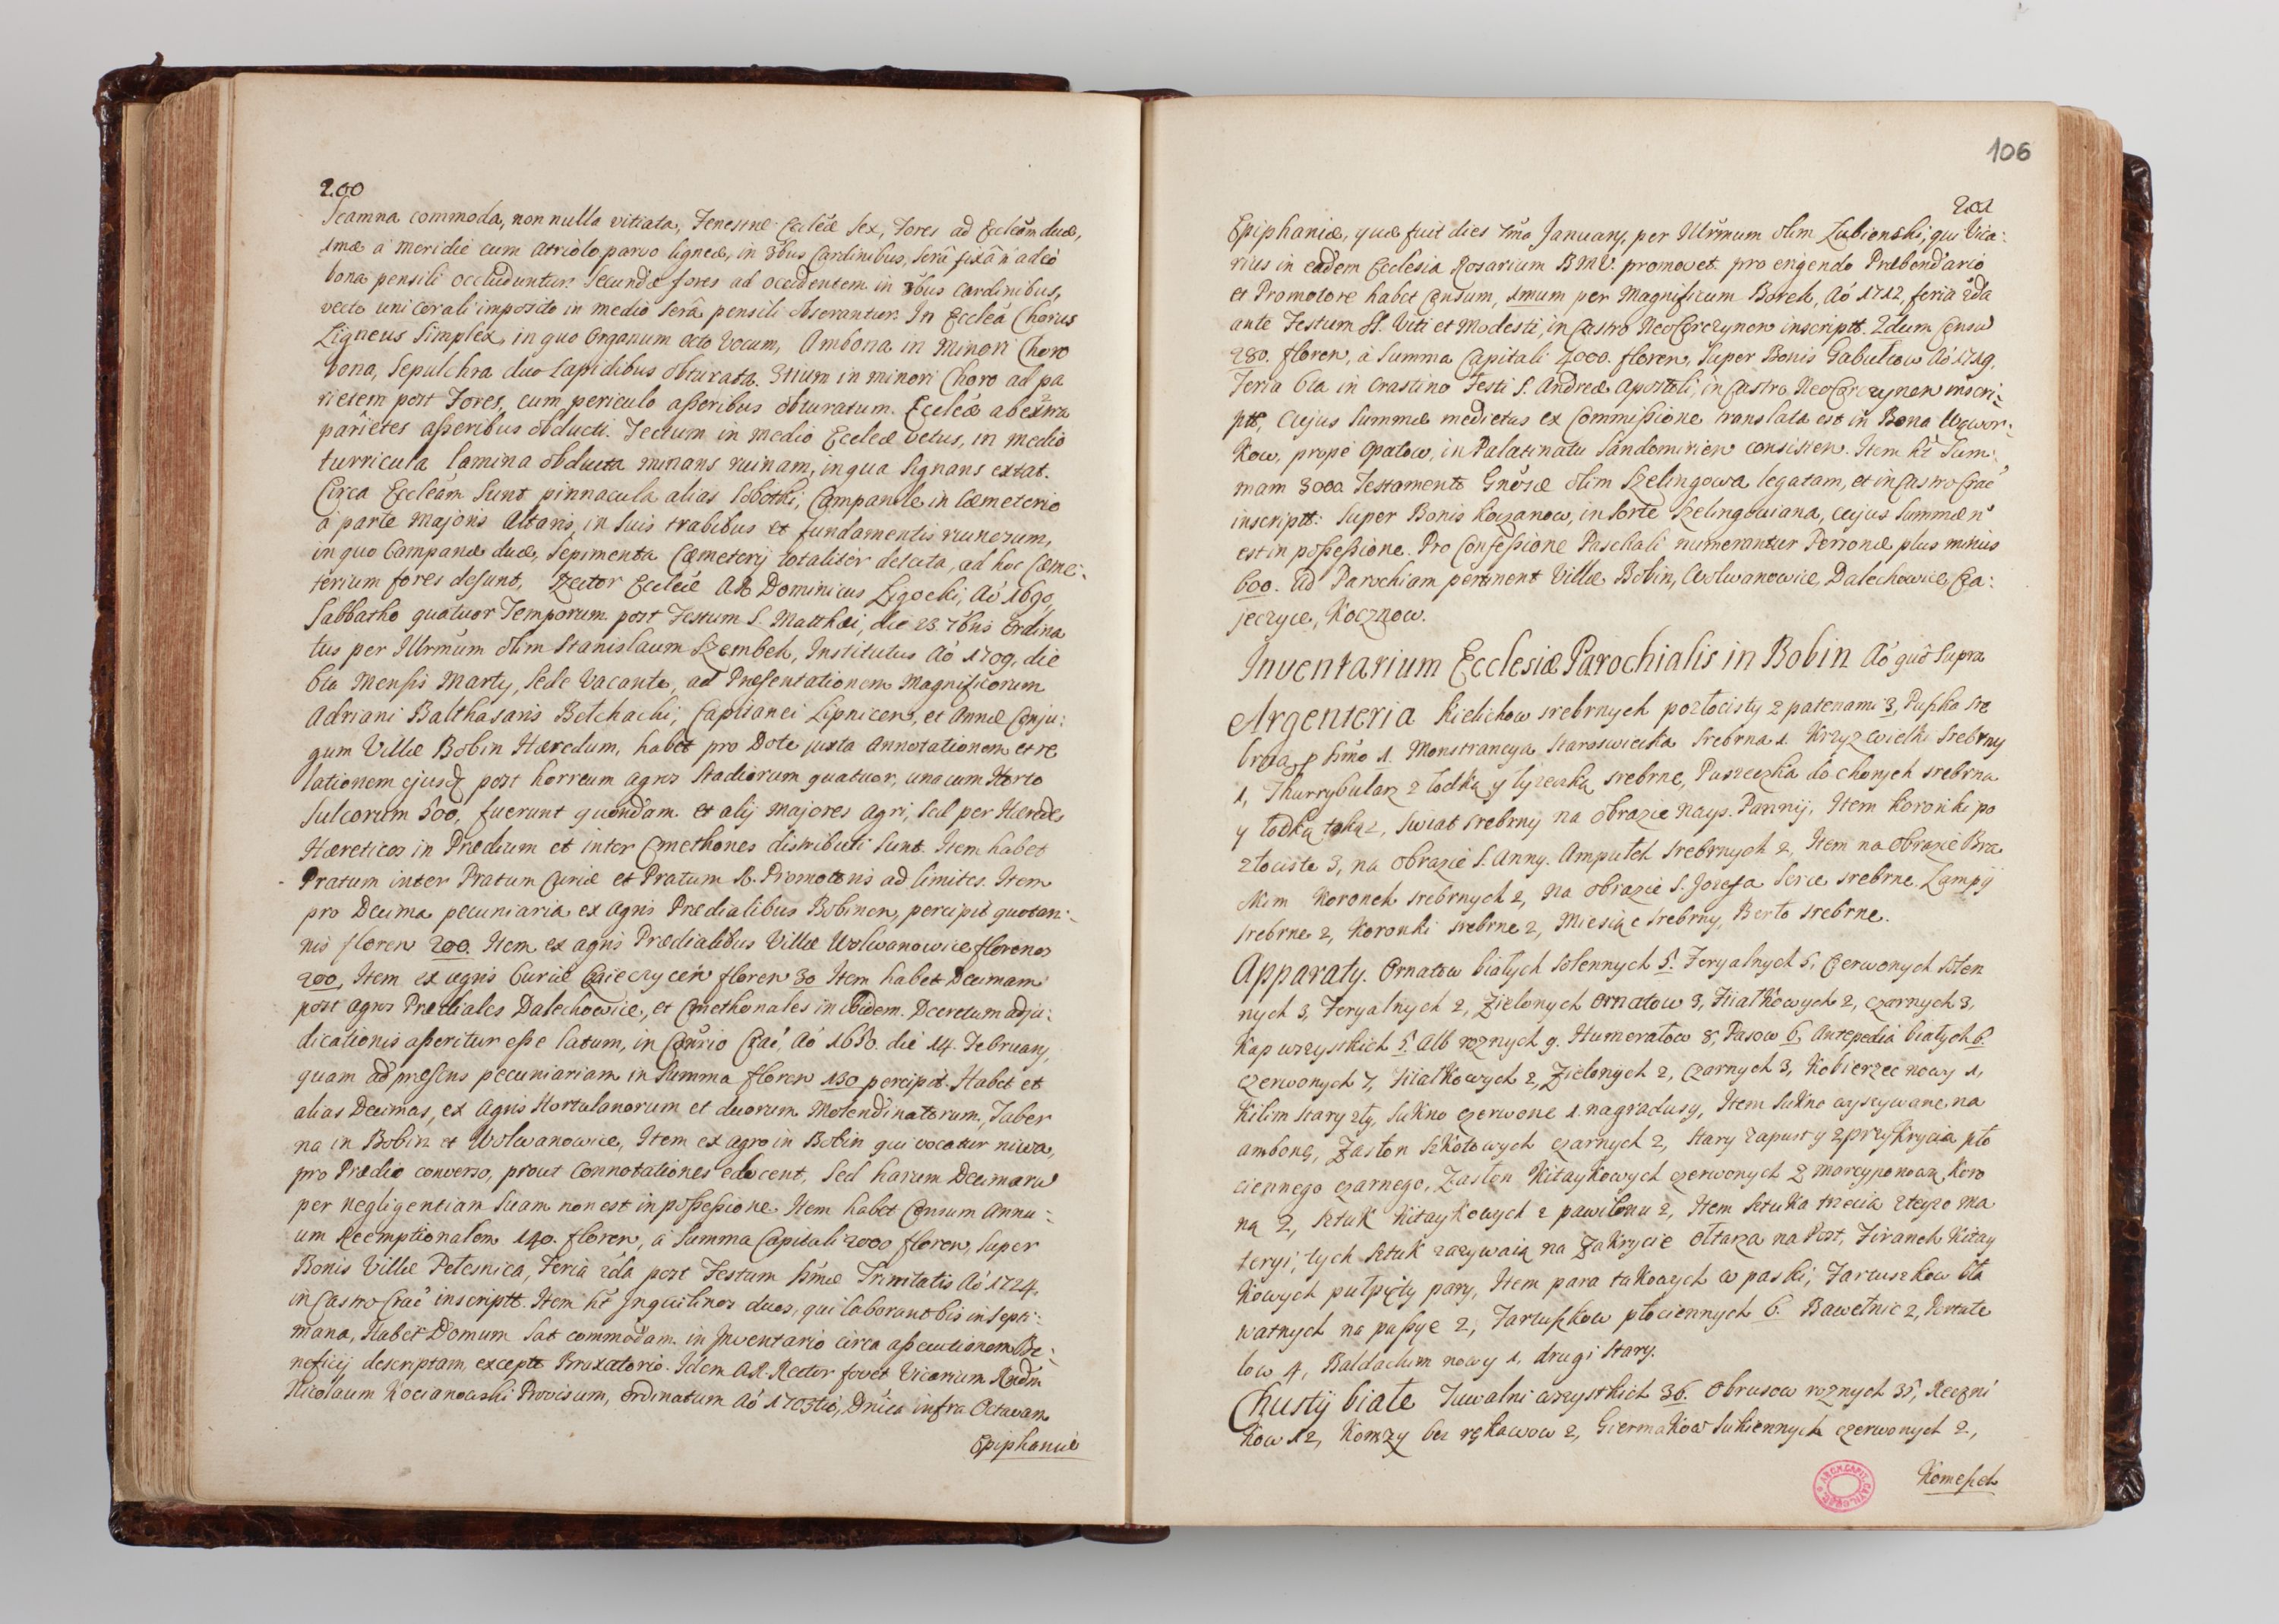 200
Scamna commoda, non nulla vitiata, Fenestræ Eccleæ Sex, Fores ad Ecclĕam duæ,
1mæ a meridie cum atriolo parvo ligneæ, in 3bus Cardinibus, serâ fixâ n̄ adeò
bona pensili occluduntur. Secundæ fores ad occidentem in 3bus cardinibus,
vecte uni corali imposito in medio serâ pensili obserantur. In Ecclea Chorus
Ligneus Simplex, in quo Organum octo Vocum, Ambona in Minori Choro
bona, Sepulchra duo Lapidibus obturata. 3tium in minori Choro ad pa
rietem post Fores, cum periculo asseribus obturatum. Eccleæ ab extra
parietes asseribus obducti. Tectum in medio Eccleæ vetus, in medio
turricula lamina obducta minans ruinam, in qua Signans extat.
Circa Eccleam Sunt pinnacula alias Sobotki, Campanile in Cæmeterio
à parte Majoris Altaris, in suis trabibus et fundamentis ruinosum,
in quo Campanæ duæ, Sepimenta Cæmeterij totalitèr deleta, ad hoc Cæme:
terium fores desunt, Rector Eccleæ AR Dominicus Ligocki, Aó 1690,
Sabbatho quatuor Temporum post Festum S. Matthæi, die 23. 7bris Ordina
tus per Illrmum olim Stanislaum Szembek, Institutus Aó 1709, die
6ta Mensis Martij, Sede Vacante, ad Præsentationem Magnificorum
Adriani Balthasaris Betchacki, Capitanei Lipnicen, et Annæ Conju:
gum Villæ Bobin Hæredum, habet pro Dote juxta Annotationem et re
lationem ejusdq post horreum agros Stadiorum quatuor, una cum Horto
Sulcorum 500, fuerunt quondam et alij majores agri, sed per Hæredes
Hæreticos in Prædium et inter Cmethones distributi Sunt. Item habet
Pratum inter Pratum Curiæ et Pratum R. Promotoris ad limites. Item
pro Decima pecuniaria ex agris Prædialibus Bobinen, percipit quotan:
nis floren 200. Item ex agris Prædialibus Villæ Wolwanowice florenos
200, Item ex agris Curiæ Czieczycen floren 30 Item habet Decimam
post agros Prædiales Dalechowice, et Cmethonales in ibidem. Decretum adju:
dicationis asseritur esse latum, in Cōnsrio Crac, Aó 1650. die 14. Februarij,
quam ad præsens pecuniariam in Summa floren 130 percipit. Habet et
alias Decimas, ex Agris Hortulanorum et duorum Molendinatorum, Taber
na in Bobin et Wolwanowice, Item ex agro in Bobin qui vocatur niwa,
pro Prædio converso, prout Connotationes edocent, Sed harum Decimaru
per negligentiam Suam non est in possessione. Item habet Censum Annu:
um Reemptionalem 140. floren, á Summa Capitali 2000 floren, Super
Bonis Villæ Pelesnica, Feria 2da post Festum Ssmæ Trinitatis Aó 1724,
in Castro Crac inscriptt. Item ht Inquilinos duos, qui laborant bis in Septi:
mana, Habet Domum Sat commodam in Inventario circa assecutionem Be:
neficij descriptam, excepto Braxatorio. Idem AR. Rector fovet Vicarium Rndm
Nicolaum Kocianowski Provisum, ordinatum Aó 1703tio, Dnica infra Octavam
Epiphaniæ
106
201
Epiphaniæ, quæ fuit dies 7ma January, per Illrmum olim Łubienski, qui Vica:
rius in eadem Ecclesia Rosarium BMV. promovet. pro erigendo Præbendario
et Promotore habet Censum, 1mum per Magnificum Borek, Aó 1712, feria 2da
ante Festum SS. Viti et Modesti, in Castro NeoCorczynen inscriptt. 2dum Censu
280. floren, à Summa Capitali 4000. floren, Super Bonis Gabułtow Aó 1719,
Feria 6ta in Crastino Festi S. Andreæ Apostoli, in Castro NeoCorczynen inscri:
ptt, Cujus Summæ medietas ex Commissione translata est in Bona Wąwor:
kow, prope Opatow, in Palatinatu Sandomirien consisten. Item ht Sum:
mam 3000 Testamento Gnosæ olim Szelingowa legatam, et in Castro Crac
inscriptt: Super Bonis Koczanow, in Sorte Szelingowiana, cujus Summæ n̄
est in possessione. Pro Confessione Paschali numerantur Personæ plus minus
600. Ad Parochiam pertinent Villæ Bobin, Wolwanowice, Dalechowice, Cza:
jeczyce, Kocznow.
Inventarium Ecclesiæ Parochialis in Bobin Aó quo Supra
Argenteria Kielichow srebrnych pozłocisty z patenami 3, Puszka Sre
brna p Ssmo 1. Monstrancya Staroswiecka Srebrna 1. Krzyz wielki Srebrny
1, Thurrybularz z łodką y łyzeczką srebrne, Puszeczka do chorych srebrna
y łodką taką 2, Swiat Srebrny na obrazie Nays. Panny, Item Koronki po
złociste 3, na Obrazie S. Anny. Ampułek srebrnych 2, Item na Obrazie Bra
ckim Koronek srebrnych 2, na obrazie S. Jozefa Serce srebrne. Lampy
srebrne 2, Koronki srebrne 2, Miesiąc srebrny, Berło srebrne.
Apparaty. Ornatow białych Solennych 5. Feryalnych 5, Czerwonych Solen
nych 3, Feryalnych 2, Zielonych Ornatow 3, Fiiałkowych 2, czarnych 3,
Kap wszystkich 5. Alb roznych 9. Humerałow 8, Pasow 6, Antepedia białych 6.
Czerwonych 7, Fiiałkowych 2, Zielonych 2, Czarnych 3, Kobierzec nowy 1,
Kilim stary zły, Sukno czerwone 1. na gradusy, Item Sukno wyszywane na
ambonę, Zasłon Szkotowych czarnych 2, Stary zapust y z przykrycia płó
ciennego czarnego, Zasłon Kitaykowych czerwonych z marcyponową Koro
ną 2, Sztuk Kitaykowych z pawilonu 2, Item Sztuka trzecia z teyze ma
teryi, tych Sztuk zazywaią na Zakrycie Ołtarza na Post, Firanek Kitay
kowych pułpięty pary, Item para takowych w paski, Fartuszkow bła
watnych na passye 2, Fartuszkow płóciennych 6. Bawełnic 2, Kortute
low 4, Baldachim nowy 1, drugi Stary.
Chusty białe Tuwalni wszystkich 36. Obrusow roznych 35, Ręczni
kow 12, Komzy bez rękawow 2, Giermakow Sukiennych czerwonych 2,
Komeszek